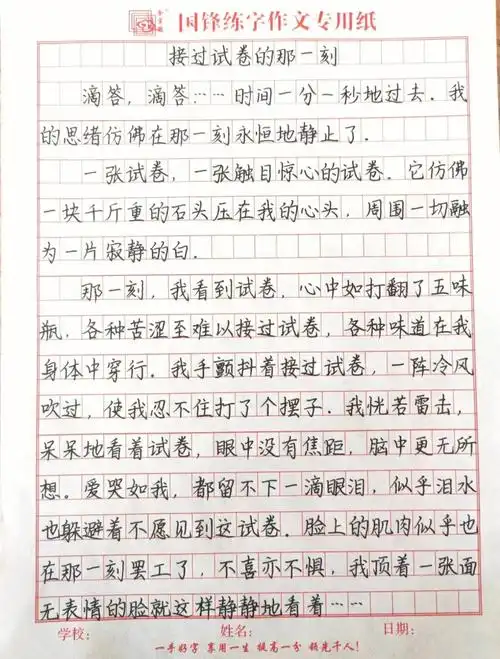 国锋练字作文专用纸
接过试卷的那一刻
滴答，滴答……时间一分一秒地过去．我
的思绪仿佛在那一刻永恒地静止了．
一张试卷，一张触目惊心的试卷．它仿佛
一块千斤重的石头压在我的心头，周围一切融
为一片寂静的白．
那一刻，我看到试卷，心中如打翻了五味
瓶，各种苦涩至难以接过试卷，各种味道在我
身体中穿行．我手颤抖着接过试卷，一阵冷风
吹过，使我忍不住打了个摆子．我恍若雷击，
呆呆地看着试卷，眼中没有焦距，脑中更无所
想。爱哭如我，都留不下一滴眼泪，似乎泪水
也躲避着不愿见到这试卷．脸上的肌肉似乎也
在那一刻罢工了，不喜亦不惧，我顶着一张面
无表情的脸就这样静静地看着……
学校： 姓名： 日期：
一手好字 享用一生 提高一分 领先千人！